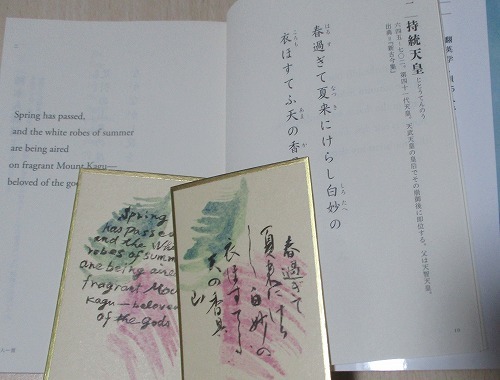 Spring has passed,
and the white robes of summer
are being aired
on fragrant Mount Kagu—
beloved of the god
一
持統天皇
じとうてんのう
六四五-七〇二。第四十一代天皇。天武天皇の皇后でその崩御後に即位する。父は天智天皇。
出典『新古今集』
春過ぎて夏来にけらし白妙の
はるす
なつき
しろたへ
衣ほすてふ天の香
ころも
あま
か
翻英学
19
Spring
has passed
and the Whi
robes of summ
are being aire
fragrant Mou
Kagu—belove
of the gods
春過ぎて
夏来にけら
し白妙の
衣ほすてふ
天の香具
山